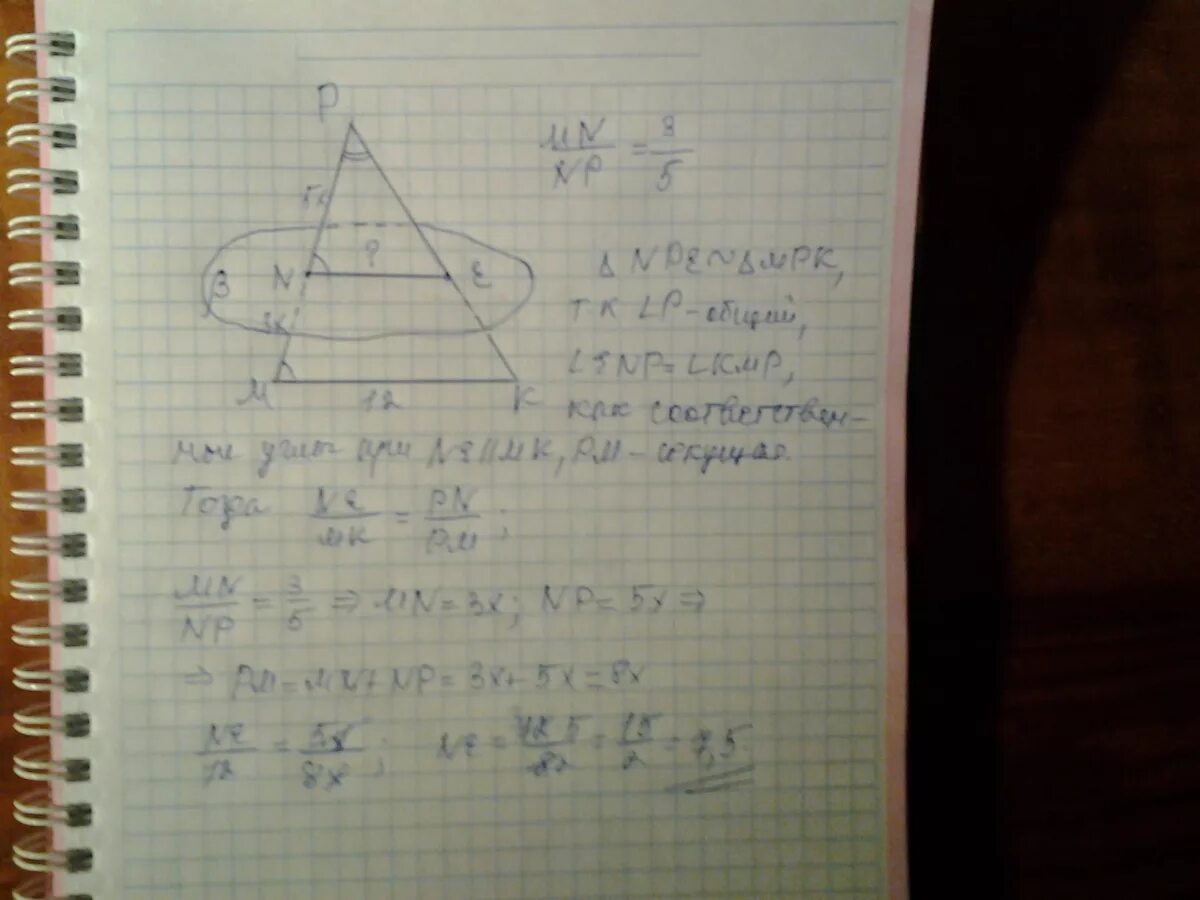 P
MN/NP = 3/5
5x
?
β
N
E
3x
M
12
K
Δ NPE ~ Δ MPK,
т к ∠P - общий,
∠ENP = ∠KMP,
как соответствен-
ные углы при NE || MK, PM - секущая.
Тогда NE/MK = PN/PM ;
MN/NP = 3/5 ⇒ MN = 3x; NP = 5x ⇒
⇒ PM = MN + NP = 3x + 5x = 8x
NE/12 = 5x/8x ; NE = 12 5/82 = 15/2 = 7,5